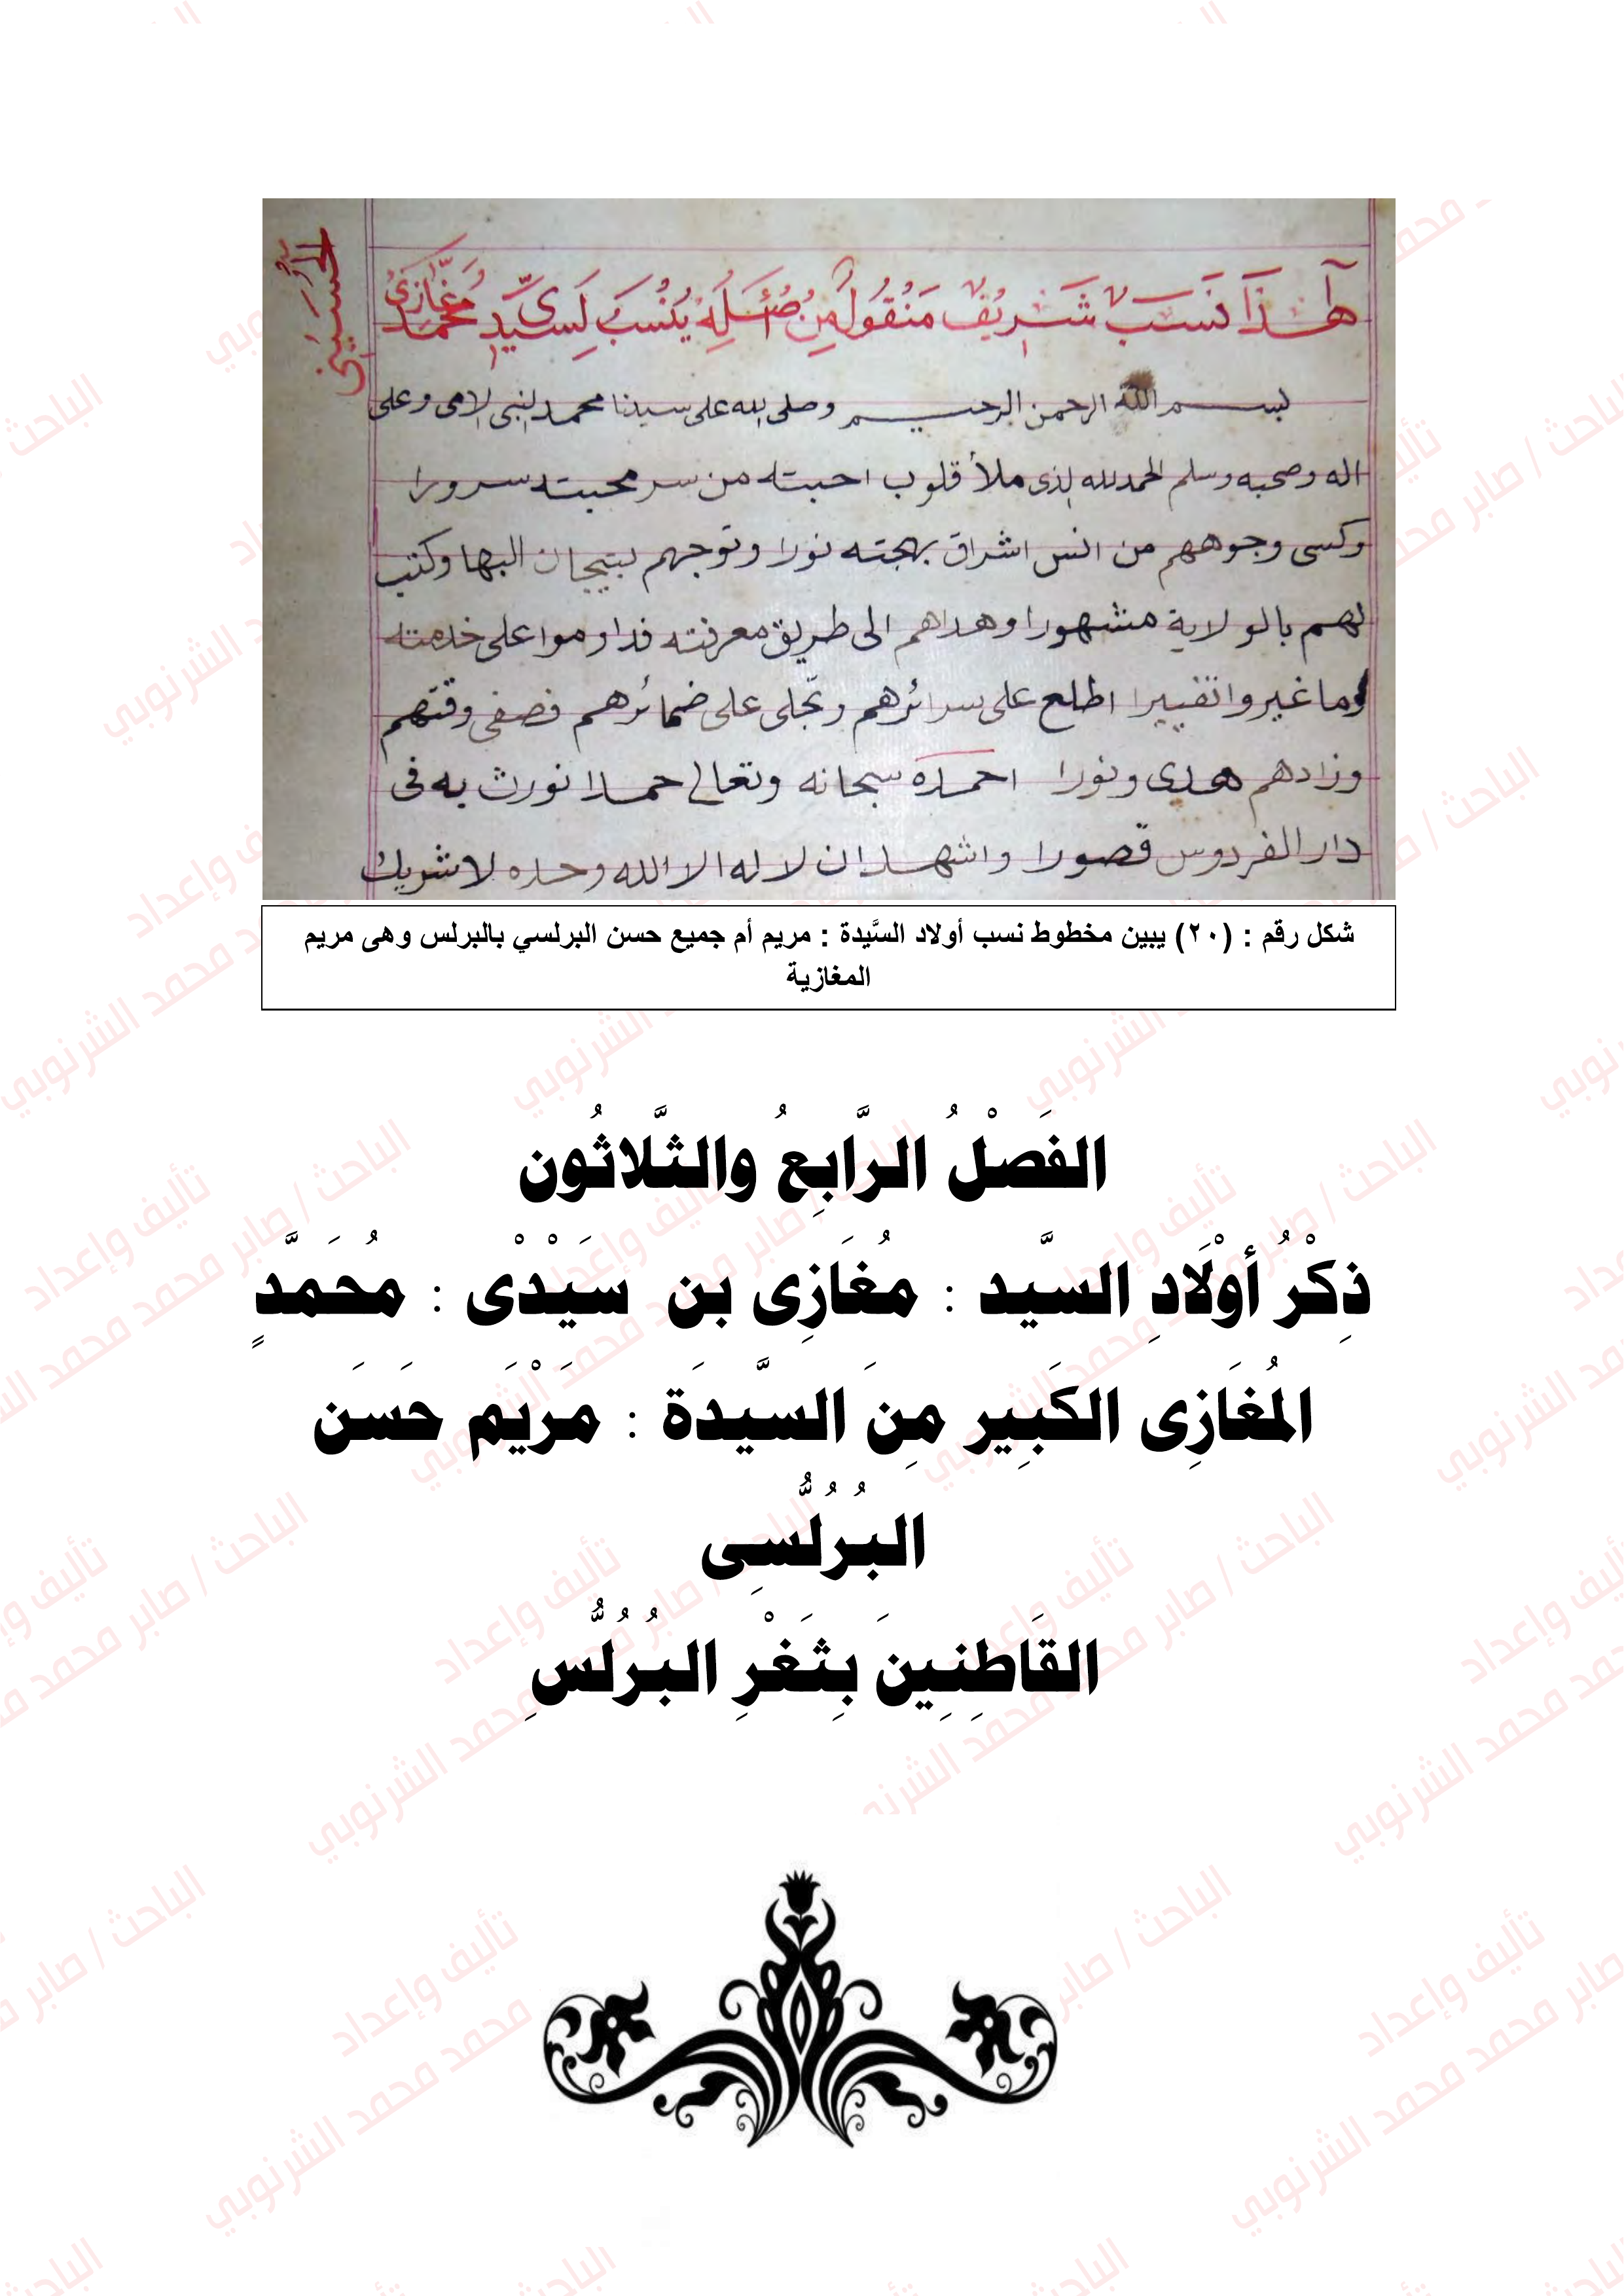 هٰذَا نَسَب شَرِيْف مَنْقُول مِنْ أَصْلِهْ يُنْسَبُ لِسَيِّدِى مُحَمَّد مُغَازِى
الحُسَيْنِي
بسم الله الرحمن الرحيم وصلى الله على سيدنا محمد النبى الامى وعلى
اله وصحبه وسلم الحمد لله الذى ملأ قلوب احبته من سر محبته سرورا
وكسى وجوههم من انس اشراق بهجته نورا وتوجهم بتيجان البها وكتب
لهم بالولاية منشهورا وهداهم الى طريق معرفته فداوموا على خدمته
وما غيروا تغييرا اطلع على سرائرهم وتجلى على ضمائرهم فصفى وقتهم
وزادهم هدى ونورا احمده سبحانه وتعالى حمدا نورث به فى
دار الفردوس قصورا واشهد ان لا اله الا الله وحده لا شريك
شكل رقم : (٢٠) يبين مخطوط نسب أولاد السَّيدة : مريم أم جميع حسن البرلسي بالبرلس وهى مريم
المغازية
الفَصْلُ الرَّابِعُ والثَّلاثُون
ذِكْرُ أوْلَادِ السَّيد : مُغَازِى بن سَيْدْى : مُحَمَّدٍ
المُغَازِى الكَبِير مِنَ السَّيدَة : مَرْيَم حَسَن
البُرُلُّسِى
القَاطِنِينَ بِثَغْرِ البُرُلُّسِ
تأليف وإعداد
الباحث / صابر محمد محمد الشرنوبي